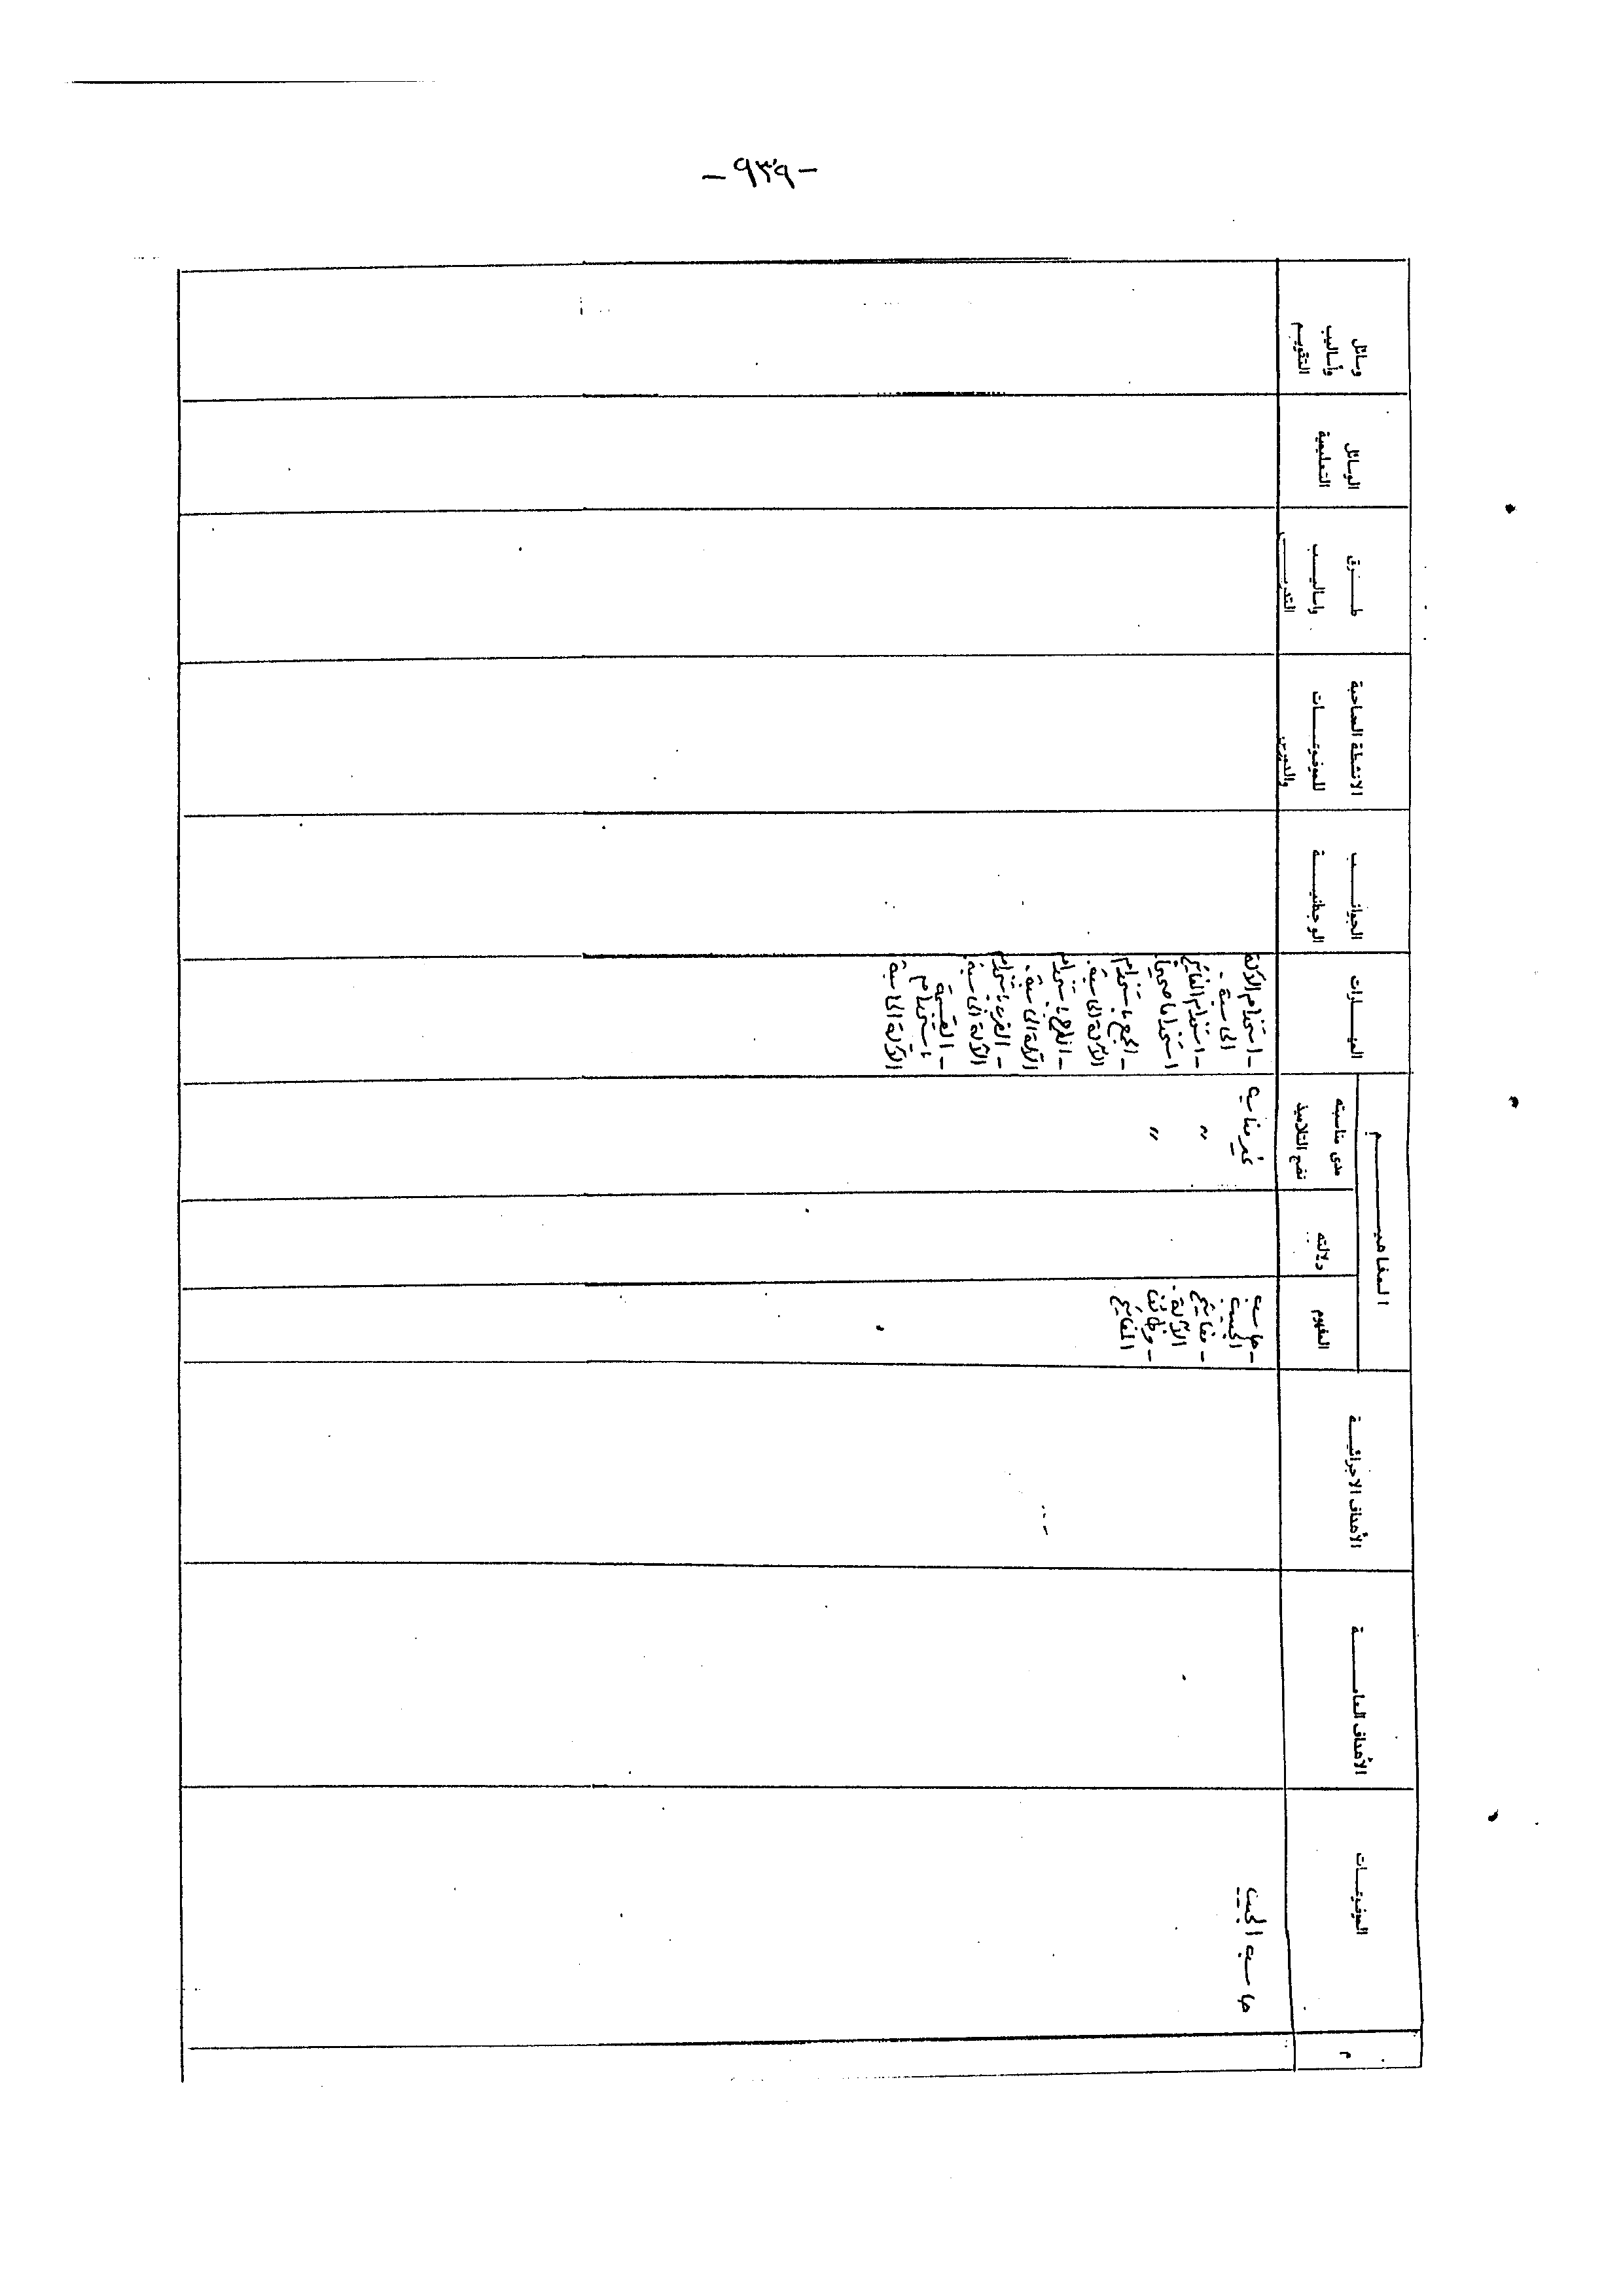 -٩٣٩-
م
الموضوعات
الأهداف العامة
الأهداف الاجرائية
المفاهيم
المفهوم
دلالته
مدى مناسبته
نضج التلاميذ
المهارات
الجوانب
الوجدانية
الانشطة المصاحبة
للموضوعات
والدروس
طرق
واساليب
التدريس
الوسائل
التعليمية
وسائل
وأساليب
التقويم
حاسب الجيب
- حاسب
الجيب.
- مفاتيح
الآلة.
- وظائف
المفاتيح
غير مناسب
"
"
- استخدام الآلة
الحاسبة.
- استخدام المفاتيح
استخداما صحيحا
- الجمع باستخدام
الآلة الحاسبة.
- الطرح باستخدام
الآلة الحاسبة.
- الضرب باستخدام
الآلة الحاسبة.
- القسمة
باستخدام
الآلة الحاسبة